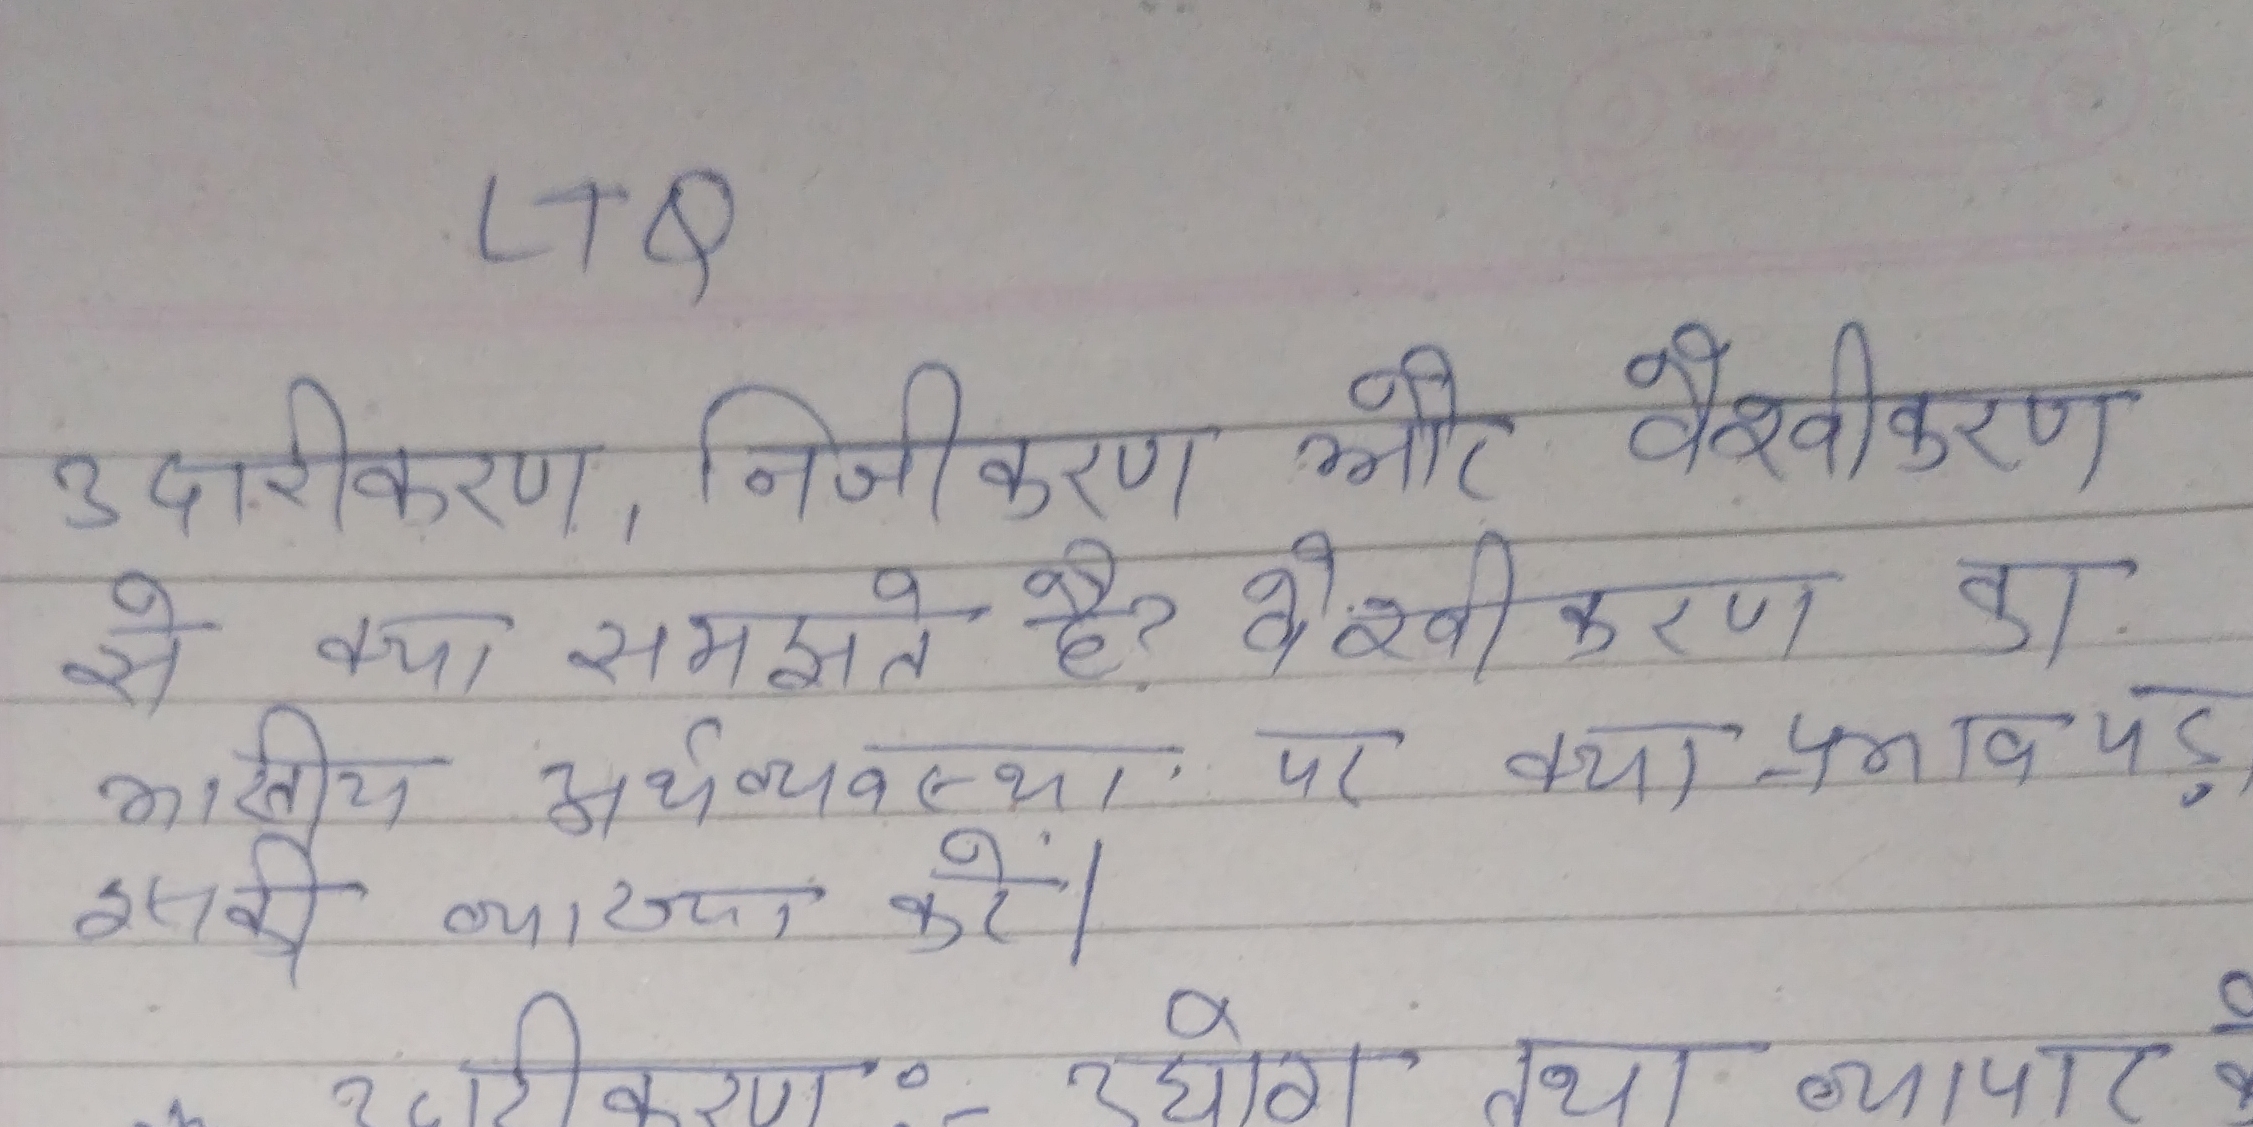 LTQ
उदारीकरण, निजीकरण और वैश्वीकरण
से क्या समझते है? वैश्वीकरण का
भारतीय अर्थव्यवस्था पर क्या प्रभाव पड़ा
इसकी व्याख्या करें।
उदारीकरण :- उद्योग तथा व्यापार के